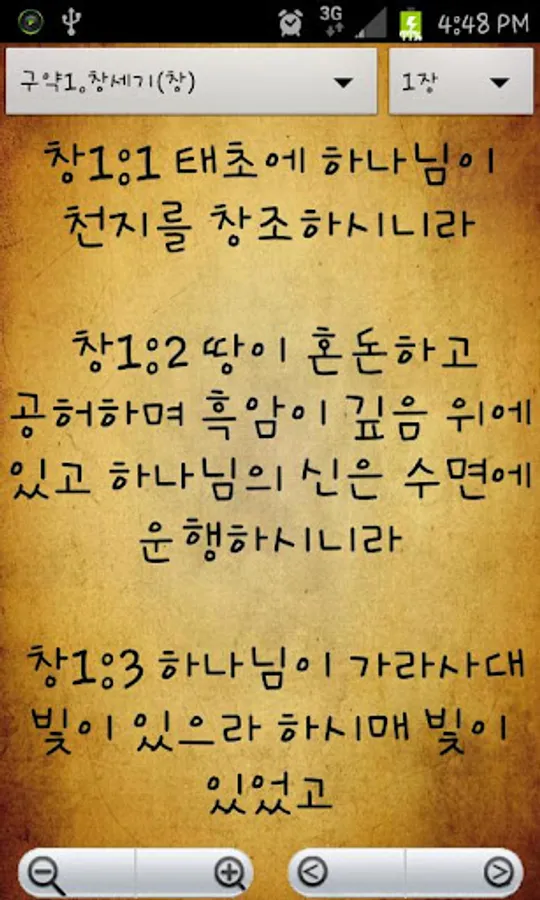 3G
4:48 PM
구약1.창세기(창)
1장
창1:1 태초에 하나님이
천지를 창조하시니라
창1:2 땅이 혼돈하고
공허하며 흑암이 깊음 위에
있고 하나님의 신은 수면에
운행하시니라
창1:3 하나님이 가라사대
빛이 있으라 하시매 빛이
있었고